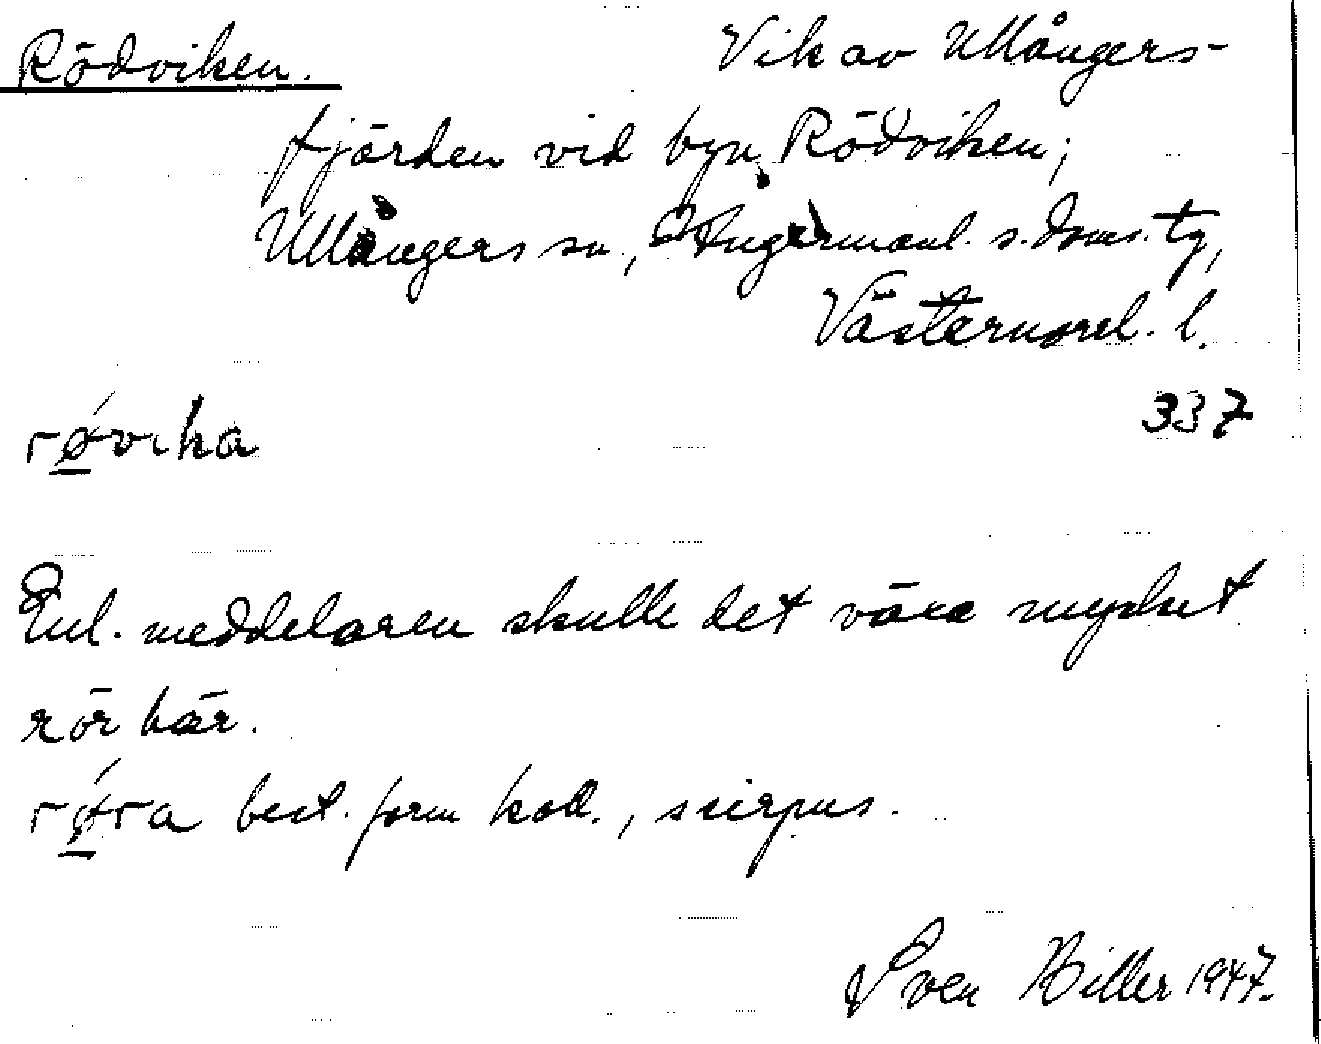 Rödviken. Vik av Ullångers-
fjärden vid byn Rödviken;
Ullångers sn, Ångermanl. s. doms. tg,
Västernorrl. l.
337
rǿvika
Enl. meddelaren skulle det växa mycket
rör här.
rǿra best. form koll., scirpus.
Sven Hiller 1947.